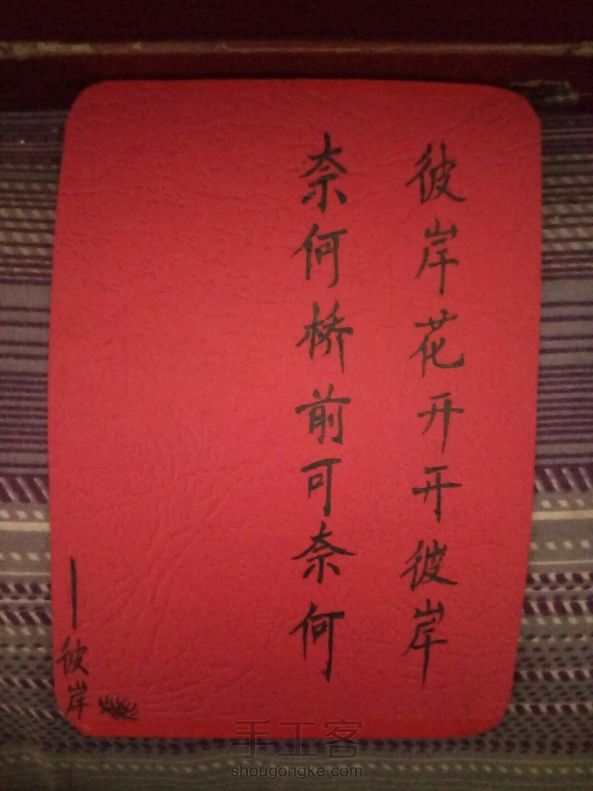 彼岸花开开彼岸
奈何桥前可奈何
—彼岸
手工客
shougongke.com